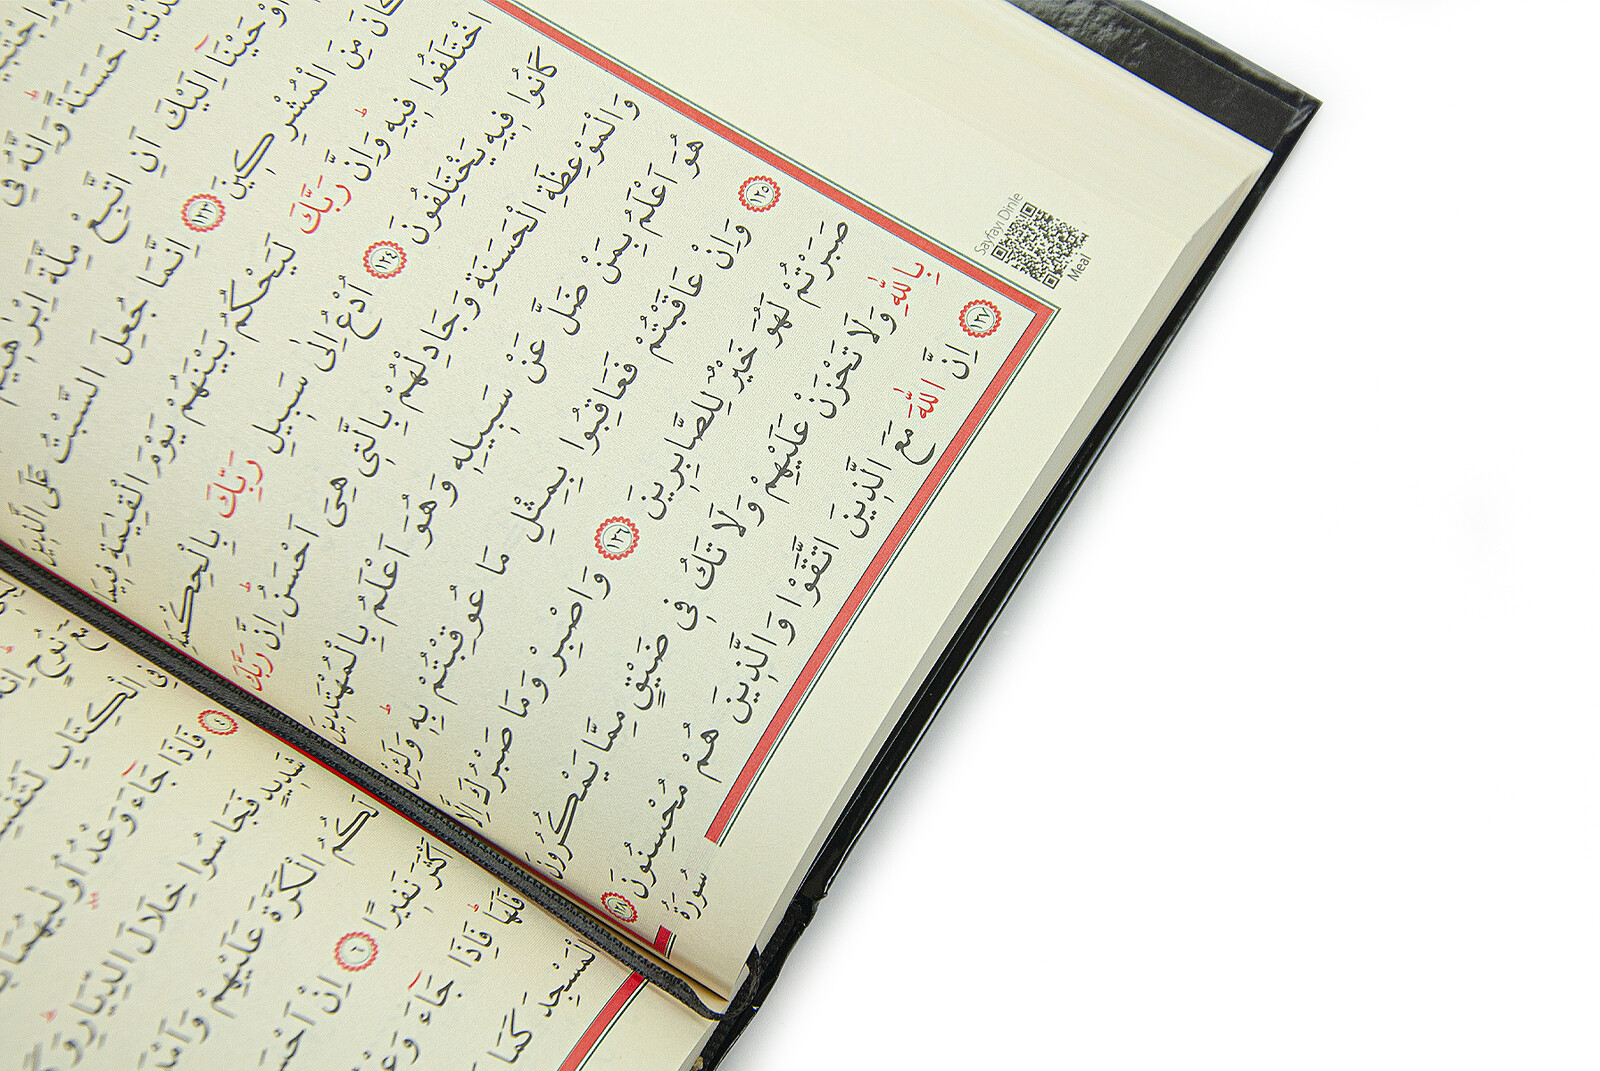 الدُّنْيَا حَسَنَةً وَاِنَّهُ فِي
اَوْحَيْنَٓا اِلَيْكَ اَنِ اتَّبِعْ مِلَّةَ اِبْرٰهِيمَ
كَانَ مِنَ الْمُشْرِكِينَ ١٢٣ اِنَّمَا جُعِلَ السَّبْتُ عَلَى الَّذِينَ
اخْتَلَفُوا فِيهِ وَاِنَّ رَبَّكَ لَيَحْكُمُ بَيْنَهُمْ يَوْمَ الْقِيٰمَةِ فِيمَا
كَانُوا فِيهِ يَخْتَلِفُونَ ١٢٤ اُدْعُ اِلٰى سَبِيلِ رَبِّكَ بِالْحِكْمَةِ
وَالْمَوْعِظَةِ الْحَسَنَةِ وَجَادِلْهُمْ بِالَّتِي هِيَ اَحْسَنُ اِنَّ رَبَّكَ
هُوَ اَعْلَمُ بِمَنْ ضَلَّ عَنْ سَبِيلِهِ وَهُوَ اَعْلَمُ بِالْمُهْتَدِينَ
١٢٥ وَاِنْ عَاقَبْتُمْ فَعَاقِبُوا بِمِثْلِ مَا عُوقِبْتُمْ بِهِ وَلَئِنْ
صَبَرْتُمْ لَهُوَ خَيْرٌ لِلصَّابِرِينَ ١٢٦ وَاصْبِرْ وَمَا صَبْرُكَ اِلَّا
بِاللّٰهِ وَلَا تَحْزَنْ عَلَيْهِمْ وَلَا تَكُ فِي ضَيْقٍ مِمَّا يَمْكُرُونَ
١٢٧ اِنَّ اللّٰهَ مَعَ الَّذِينَ اتَّقَوْا وَالَّذِينَ هُمْ مُحْسِنُونَ ١٢٨
سُورَةُ
Sayfayı Dinle
Meal
مَعَ نُوحٍ اِنَّهُ
فِي الْكِتَابِ
٤ فَاِذَا جَٓاءَ وَعْدُ اُولٰيهُمَا
شَدِيدٍ فَجَاسُوا خِلَالَ الدِّيَارِ
لَكُمُ الْكَرَّةَ عَلَيْهِمْ
اَكْثَرَ نَفِيرًا ٦ اِنْ
فَلَهَا فَاِذَا جَٓاءَ
الْمَسْجِدَ كَمَا